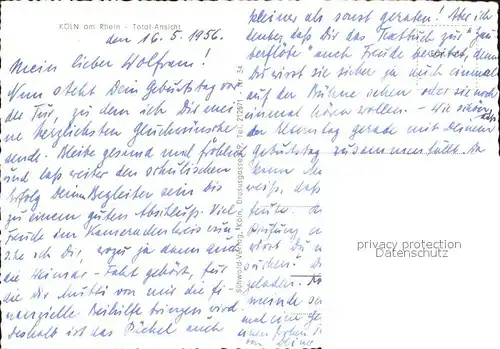 KÖLN am Rhein - Total-Ansicht
den 16. 5. 1956.
Mein lieber Wolfram!
Nun steht Dein Geburtstag vor
der Tür, zu dem ich Dir mei-
ne herzlichsten Glückwünsche
sende. Bleibe gesund und fröhlich
und laß weiter den schulischen
Erfolg Deine Begleiter sein bis
zu einem guten Abschluß. Viel
Freude im Kameradenkreis wün-
sche ich Dir, wozu ja dann auch
die Weimar-Fahrt gehört, für
die die Mutti von mir die fi-
nanzielle Beihilfe bringen wird.
deshalb ist das Päckel auch
kleiner als sonst geraten! Aber ich
denke, daß Dir das Textbuch zur "Zau-
berflöte" auch Freude bereitet, denn
Du wirst sie sicher ja noch einmal
auf der Bühne sehen oder sie noch
einmal hören wollen. - Wie schön, daß
der Montag gerade mit Deinem
Geburtstag zusammenfällt.
kann
weiß, daß
heute.
Prüfung
wirst Du
suchen!
geladen.
mal eine
einen frohen
Schwald-Verlag, Köln, Drususgasse Tel. 212971 Nr. 34
privacy protection
Datenschutz